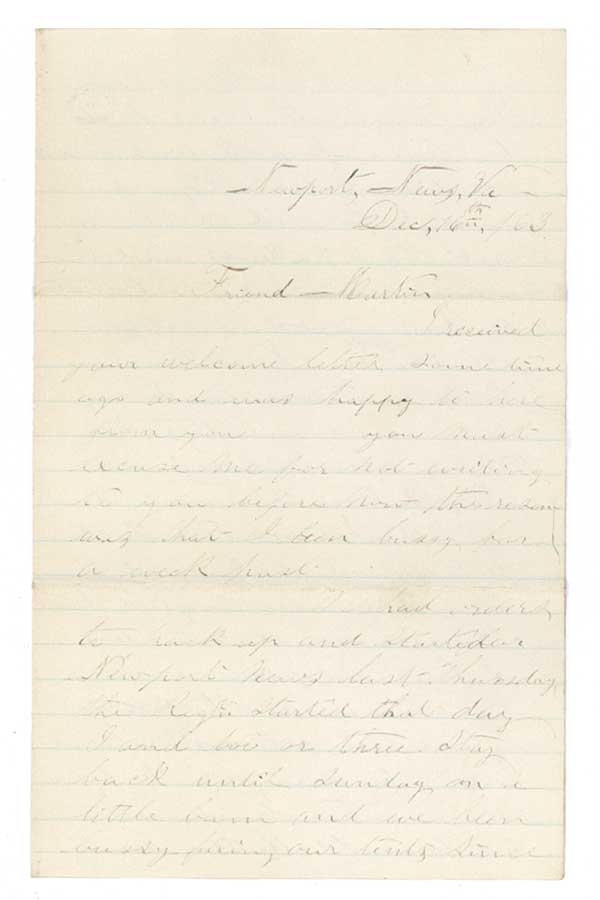 Newport, News, Va
Dec, 16th, /63.
Friend - Martin
I received
your welcome letter some time
ago and was happy to here
from you you must
excuse me for not writing
to you before now the reason
was that I been bussy for
a week past
We had orders
to pack up and started for
Newport News last Thursday
the Regt. started that day
I and two or three Stay
back until Sunday on a
little bum and we been
bussy fixing our tents since